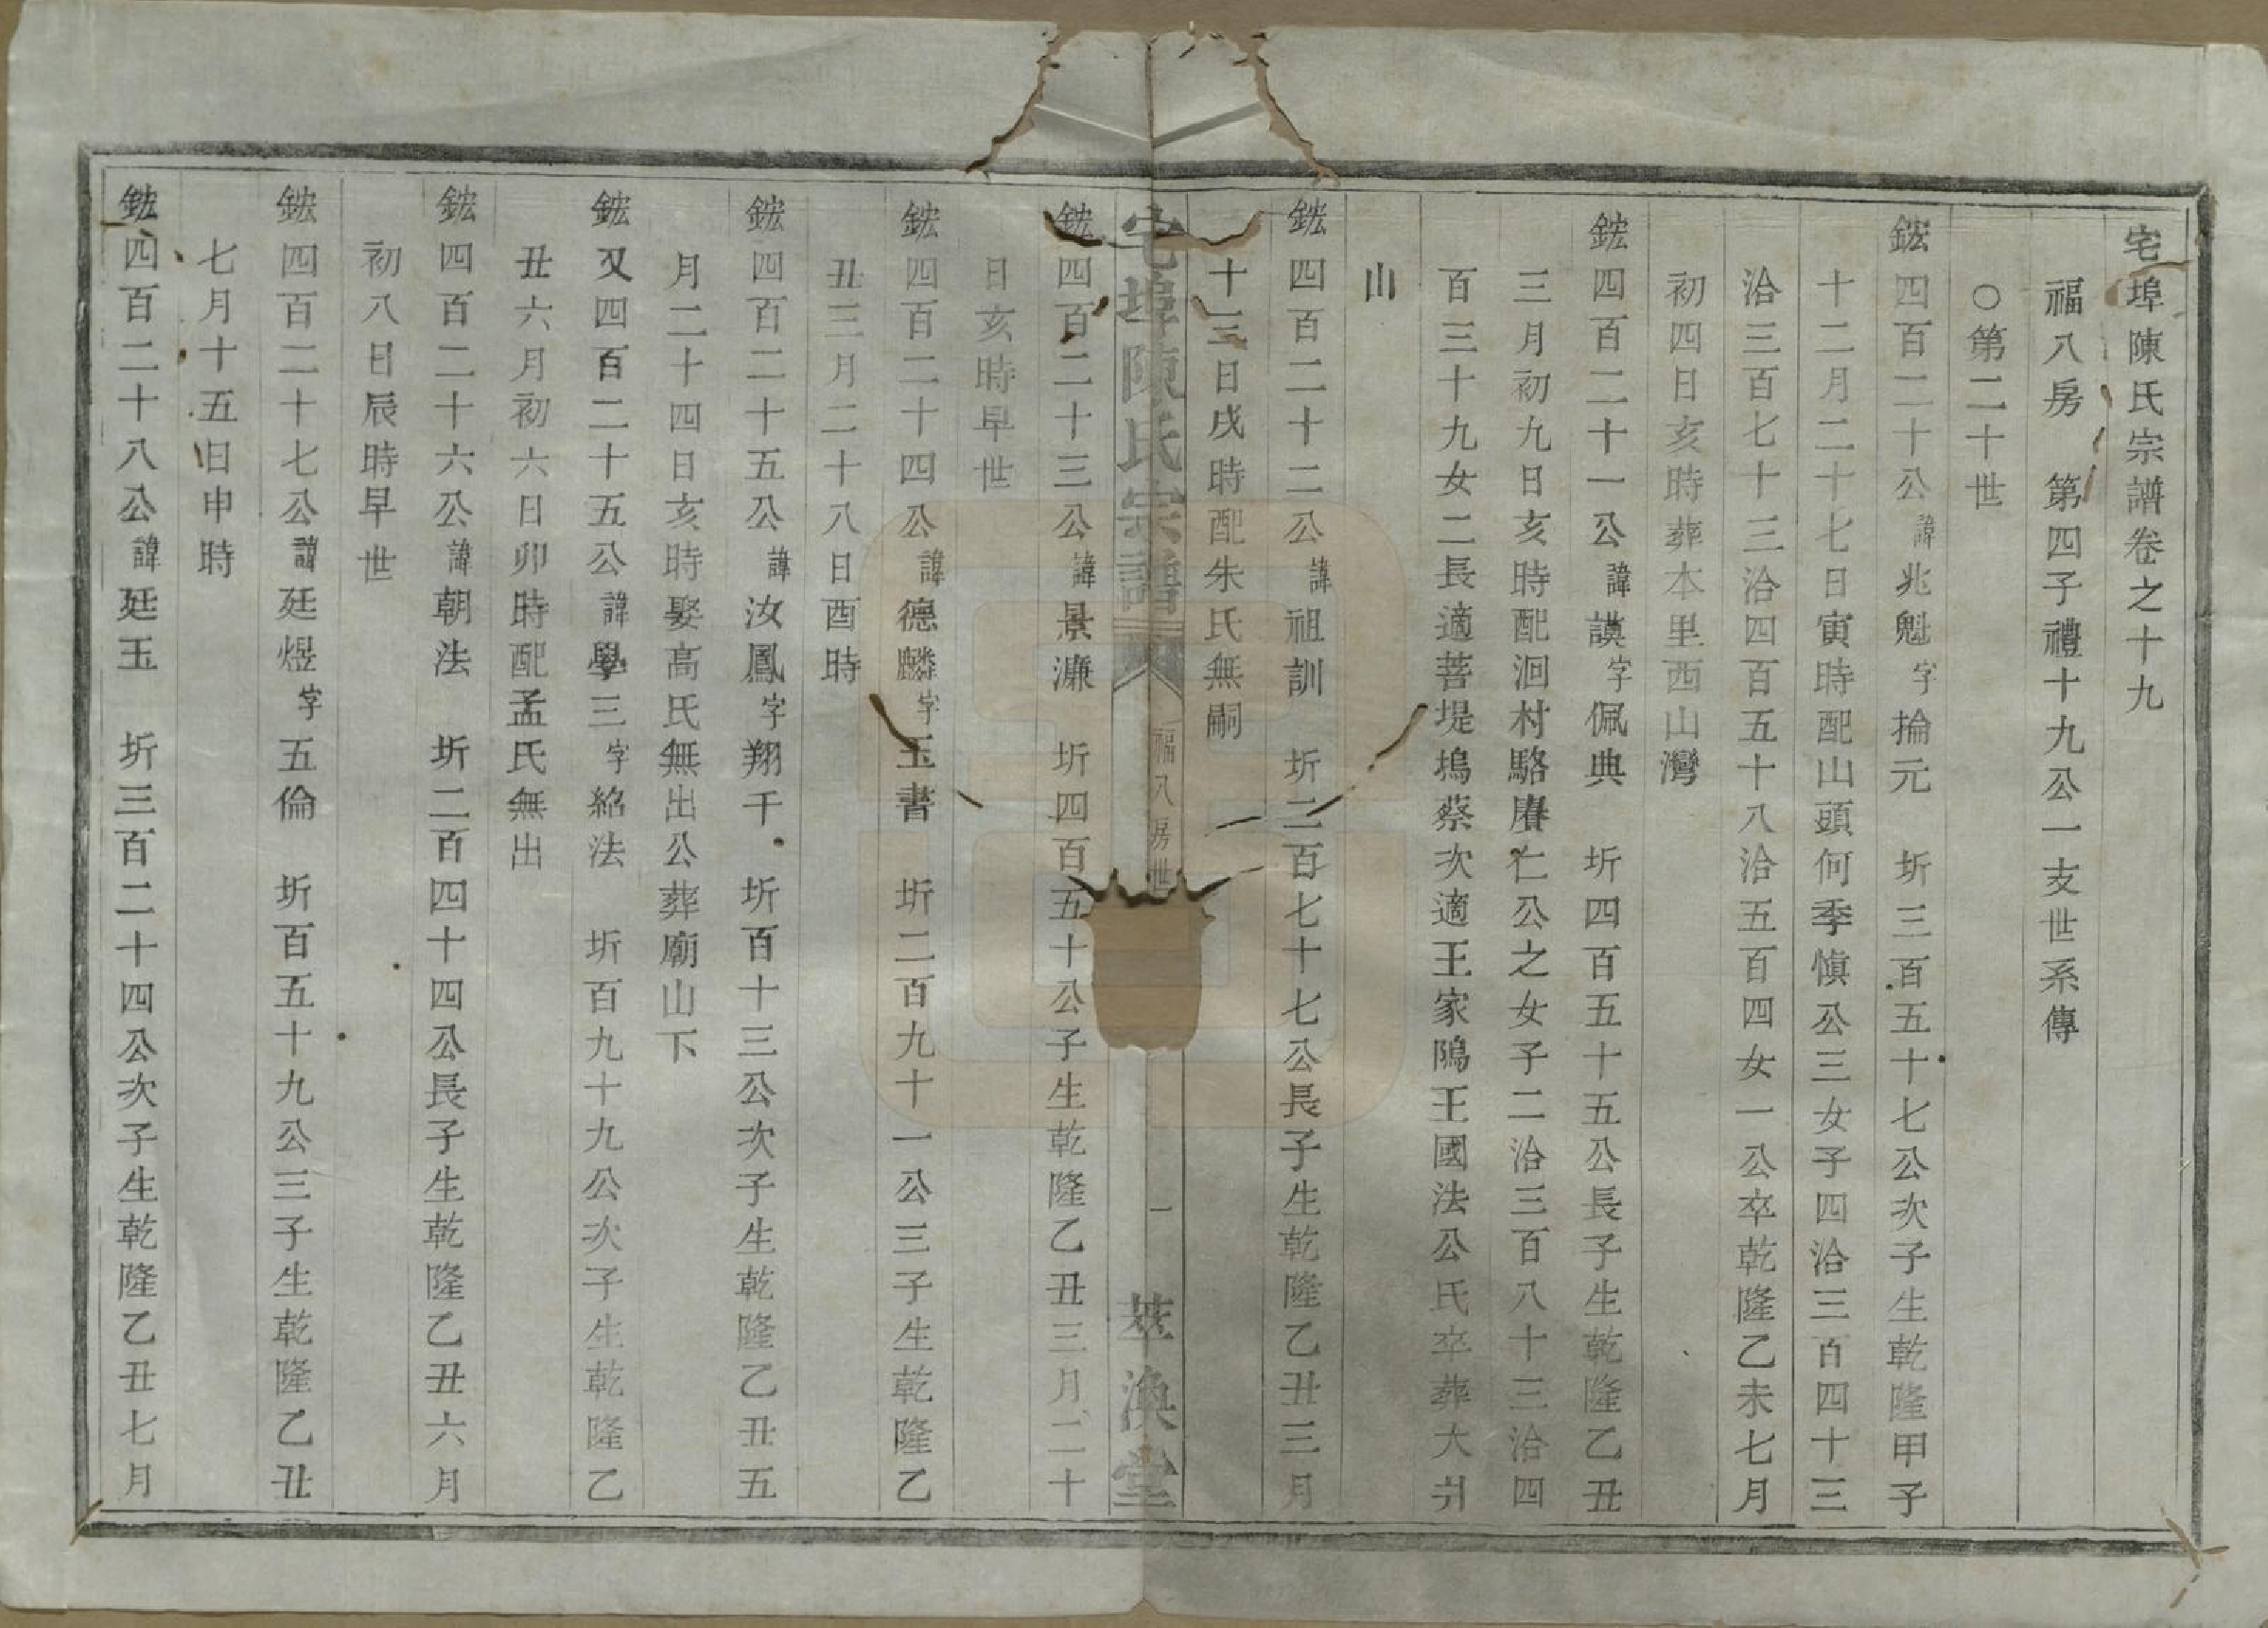 宅埠陳氏宗譜卷之十九
福八房　第四子禮十九公一支世系傳
○第二十世
鋐四百二十公諱兆魁字掄元　圻三百五十七公次子生乾隆甲子
十二月二十七日寅時配山頭何季愼公三女子四洽三百四十三
洽三百七十三洽四百五十八洽五百四女一公卒乾隆乙未七月
初四日亥時葬本里西山灣
鋐四百二十一公諱謨字佩典　圻四百五十五公長子生乾隆乙丑
三月初九日亥時配洄村駱賡仁公之女子二洽三百八十三洽四
百三十九女二長適菩堤塢蔡次適王家隝王國法公氏卒葬大爿
山
鋐四百二十二公諱祖訓　圻二百七十七公長子生乾隆乙丑三月
十三日戌時配朱氏無嗣
宅埠陳氏宗譜　福八房世　一　萃渙堂
鋐四百二十三公諱景濂　圻四百五十公子生乾隆乙丑三月二十
日亥時早世
鋐四百二十四公諱德麟字玉書　圻二百九十一公三子生乾隆乙
丑三月二十八日酉時
鋐四百二十五公諱汝鳳字翔千　圻百十三公次子生乾隆乙丑五
月二十四日亥時娶高氏無出公葬廟山下
鋐又四百二十五公諱學三字紹法　圻百九十九公次子生乾隆乙
丑六月初六日卯時配孟氏無出
鋐四百二十六公諱朝法　圻二百四十四公長子生乾隆乙丑六月
初八日辰時早世
鋐四百二十七公諱廷煜字五倫　圻百五十九公三子生乾隆乙丑
七月十五日申時
鋐四百二十八公諱廷玉　圻三百二十四公次子生乾隆乙丑七月